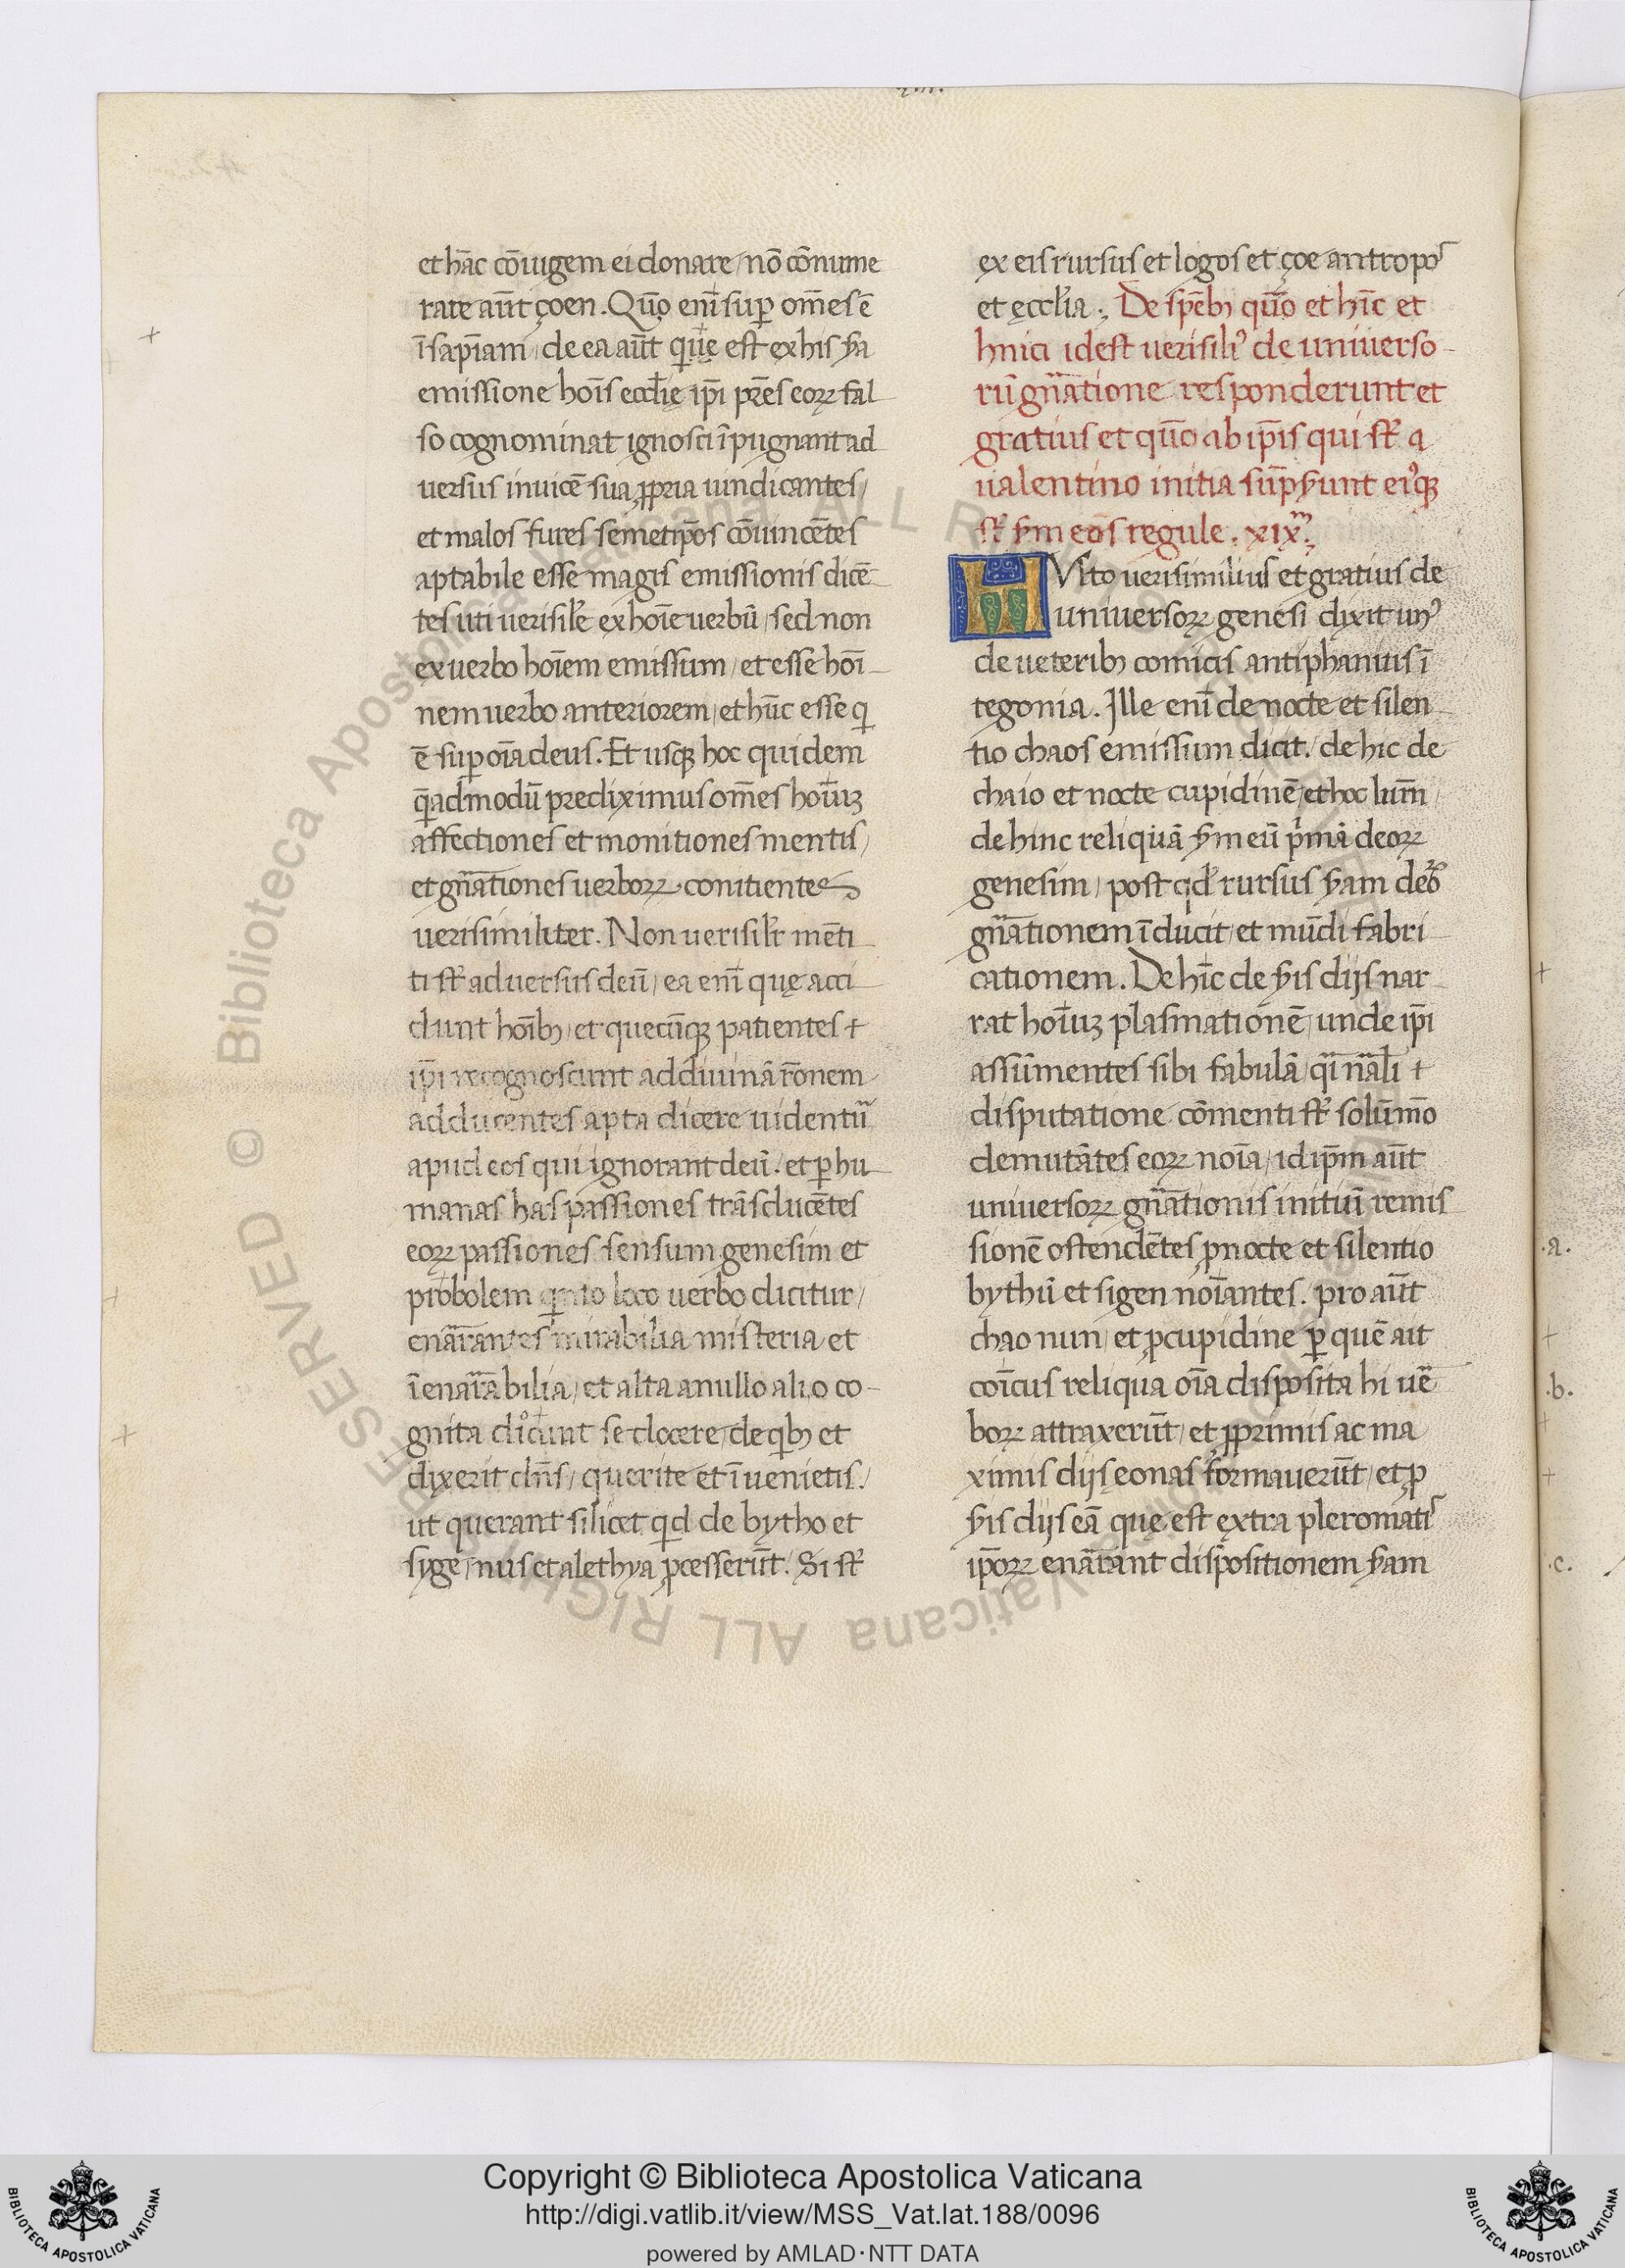 et hāc cōiugem ei donare / nō cōnume
rare aūt çoen. Quō enī sup om̄es ē
ī sapīam / de ea aūt quę est ex his scďa
emissione hoīs eccłię ip̄i pr̄es eoꝝ fal
so cognominat ignosci īpugnant ad
uersus inuicē sua ꝓpria uindicantes /
et malos fures semetip̄os cōuincētes
aptabile esse magis emissionis dicē
tes uti uerisile ex hoīe uerbū / sed non
ex uerbo hoīem emissum / et esse hoī
nem uerbo anteriorem / et hūc esse q
ē sup oīa deus. Et usqꝫ hoc quidem
q̄admodū prediximus om̄es hoīuꝫ
affectiones et monitiones mentis /
et gn̄ationes uerboꝝ conitientes
uerisimiliter. Non uerisilr mēti
ti st̄ aduersus deū / ea enī quę acci
dunt hoībꝫ / et quecūqꝫ patientes +
ip̄i recognoscunt ad diuinā rōnem
adducentes apta dicere uidentur
apud eos qui ignorant deū. et ꝑ hu
manas has passiones trāsducētes
eoꝝ passiones sensum genesim et
probolem qnto loco uerbo dicitur /
enārantes mirabilia misteria et
īenārabilia / et alta a nullo alio co
gnita dicunt se docere / de qbꝫ et
dixerit dn̄s / querite et īuenietis /
ut querant silicet qd de bytho et
syge / nus et alethya ꝓcesserūt. Si st̄
ex eis rursus et logos et çoe antropos
et ęccłia. De spēbꝫ quō et hīc et
hnici idest uerisili9 de uniuerso
rū gn̄atione responderunt et
gratius et quō ab ip̄is qui st̄ a
ualentino initia sūpserunt eiqꝫ
st̄ scďm eos regule. xixm.
MUlto uerisimilius et gratius de
uniuersoꝝ genesi dixit un9
de ueteribꝫ comicis antiphanius ī
tegonia. Ille enī de nocte et silen
tio chaos emissum dicit. de hic de
chaio et nocte cupidinē / et hoc lum̄
dehinc reliquā scďm eū pīmā deoꝝ
genesim / post qd rursus scďam deoꝝ
gn̄ationem īducit / et mūdi fabri
cationem. De hīc de scďis dijs nar
rat hoīuꝫ plasmationē / unde ip̄i
assūmentes sibi fabulā / qi nāli +
disputatione cōmenti st̄ solūmō
demutātes eoꝝ noīa / id ip̄m aūt
uniuersoꝝ gn̄ationis initiū remis
sionē ostendētes ꝓ nocte et silentio
bythū et sigen noīantes. pro aūt
chao nun / et ꝓ cupidine ꝑ quē ait
coīcus reliqua oīa disposita hi uē
boꝝ attraxerūt / et ꝓ primis ac ma
ximis dijs eonas formauerūt / et ꝓ
scďis dijs eā quę est ęxtra pleromatis
ip̄oꝝ enārant dispositionem scďam
.a.
.b.
.c.
© Biblioteca Apostolica Vaticana ALL RIGHTS RESERVED
Copyright © Biblioteca Apostolica Vaticana
http://digi.vatlib.it/view/MSS_Vat.lat.188/0096
powered by AMLAD·NTT DATA
BIBLIOTECA APOSTOLICA VATICANA
BIBLIOTECA APOSTOLICA VATICANA